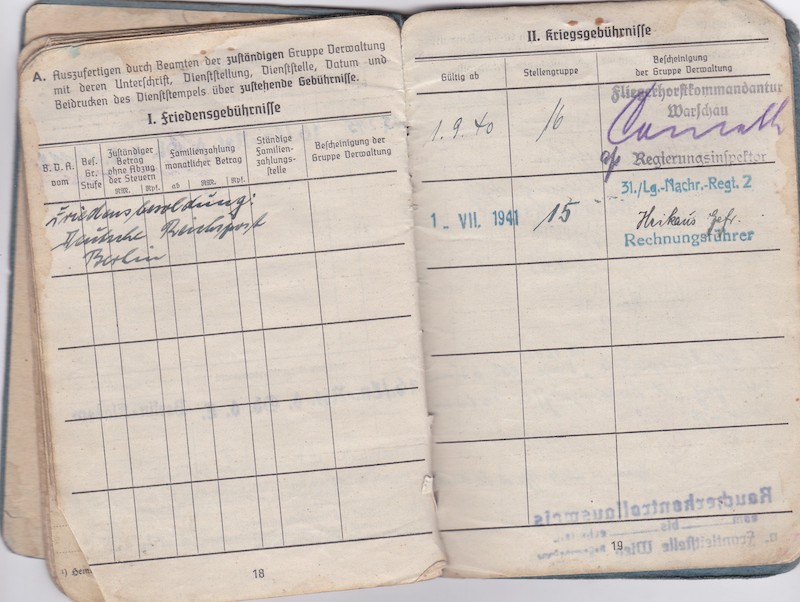 A. Auszufertigen durch Beamten der zuständigen Gruppe Verwaltung
mit deren Unterschrift, Dienststellung, Dienststelle, Datum und
Beidrucken des Dienststempels über zustehende Gebührnisse.
I. Friedensgebührnisse
B. D. A.
vom
Bes.
Gr.
Stufe
Zuständiger
Betrag
ohne Abzug
der Steuern
RM. Rpf.
Familienzahlung
monatlicher Betrag
ab RM. Rpf.
Ständige
Familien-
zahlungs-
stelle
Bescheinigung der
Gruppe Verwaltung
Friedensbesoldung:
Deutsche Reichspost
Berlin
18
II. Kriegsgebührnisse
Gültig ab
Stellengruppe
Bescheinigung
der Gruppe Verwaltung
1.9.40
16
Fliegerhorstkommandantur
Warschau
Regierungsinspektor
1 - VII. 1941
15
31./Lg.-Nachr.-Regt. 2
Gefr.
Rechnungsführer
Raucherkontrollausweis
bis
19